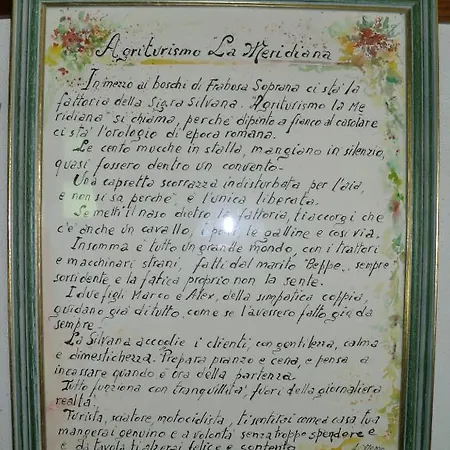 Agriturismo La Meridiana
In mezzo ai boschi di Frabosa Soprana ci sta' la
fattoria della Sig.ra Silvana. Agriturismo la Me
ridiana" si chiama, perche' dipinto a fianco al casolare
ci sta' l'orologio di epoca romana.
Le cento mucche in stalla, mangiano in silenzio,
quasi fossero dentro un convento-
Una capretta scorrazza indisturbata per l'aia,
e non si sa perche', e l'unica liberata.
Se metti il naso dietro la fattoria, ti accorgi che
c'e anche un cavallo, i polli, le galline e così via.
Insomma è tutto un grande mondo, con i trattori
e macchinari strani, fatti dal marito Beppe, sempre
sorridente, e la fatica proprio non la sente.
I due figli Marco e Alex, della simpatica coppia,
guidano già di tutto, come se l'avessero fatto già da
sempre-
La Silvana accoglie i clienti, con gentilezza, calma
e dimestichezza. Prepara pranzo e cena, e pensa a
incassare quando è ora della partenza.
Tutto funziona con tranquillita', fuori della giornaliera
realta'.
Turista, sciatore, motociclista, ti sentirai come a casa tua
mangerai genuino e a volontà senza troppo spendere e
e da tavola ti alzerai felice e contento